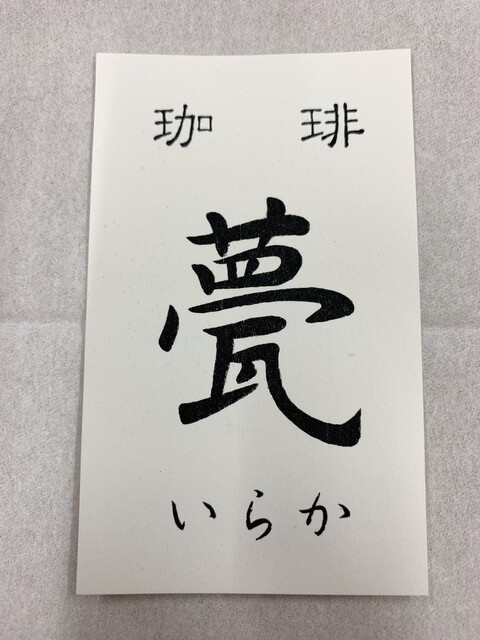 珈琲
甍
いらか